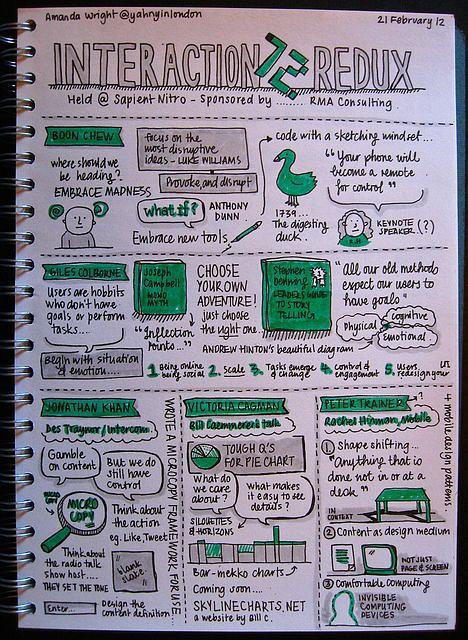 Amanda Wright @yahnyinlondon
21 February 12
INTERACTION 12 REDUX
Held @ SapientNitro - Sponsored by ........ RMA Consulting
BOON CHEW
where should we
be heading?
EMBRACE MADNESS
focus on the
most disruptive
ideas - LUKE WILLIAMS
Provoke and disrupt
what if?
ANTHONY
DUNN.
Embrace new tools
code with a sketching mindset...
1739...
The digesting
duck.
"Your phone will
become a remote
for control"
KEYNOTE
SPEAKER (?)
GILES COLBORNE
Users are hobbits
who don't have
goals or perform
tasks....
Begin with situation
& emotion....
Joseph
Campbell
MONO
MYTH
"Inflection
Points..."
CHOOSE
YOUR OWN
ADVENTURE!
just choose
the right one.
Stephen
Denning
LEADERS GUIDE
TO STORY
TELLING
"All our old methods
expect our users to
have goals"
Physical
Cognitive
Emotional
ANDREW HINTON'S beautiful diagram
1. Being online
being social
2. Scale
3. Tasks emerge
& change
4. Control &
engagement
5. Users
redesign your
UI
JONATHAN KHAN
Des Traynor/Intercom..
Gamble
on content
But we do
still have
control
MICRO
COPY
MICRO
COPY
Think about
the action
eg. Like, Tweet
Think about
the radio talk
show host....
THEY SET THE TONE
blank
slate.
Enter...
Design the
content definition
WRITE A MICROCOPY FRAMEWORK FOR USE...
VICTORIA CAGMAN
Bill Caemmerer's talk
TOUGH Q'S
FOR PIE CHART
What do
we care
about?
What makes
it easy to see
details?
SILOUETTES
& HORIZONS
Bar-mekko charts
Coming soon....
SKYLINECHARTS.NET
a website by Bill C.
PETER TRAINER
Rachel Hinman, Mobile
4 mobile design patterns
1 Shape shifting...
"Anything that is
done not in or at a
desk"
IN
CONTEXT
2 Content as design medium
NOT JUST
PAGE & SCREEN
3 Comfortable Computing
INVISIBLE
COMPUTING
DEVICES